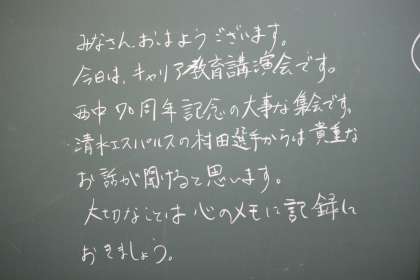 みなさん、おはようございます。
今日は、キャリア教育講演会です。
西中70周年記念の大事な集会です。
清水エスパルスの村田選手からは貴重な
お話が聞けると思います。
大切なことは心のメモに記録して
おきましょう。